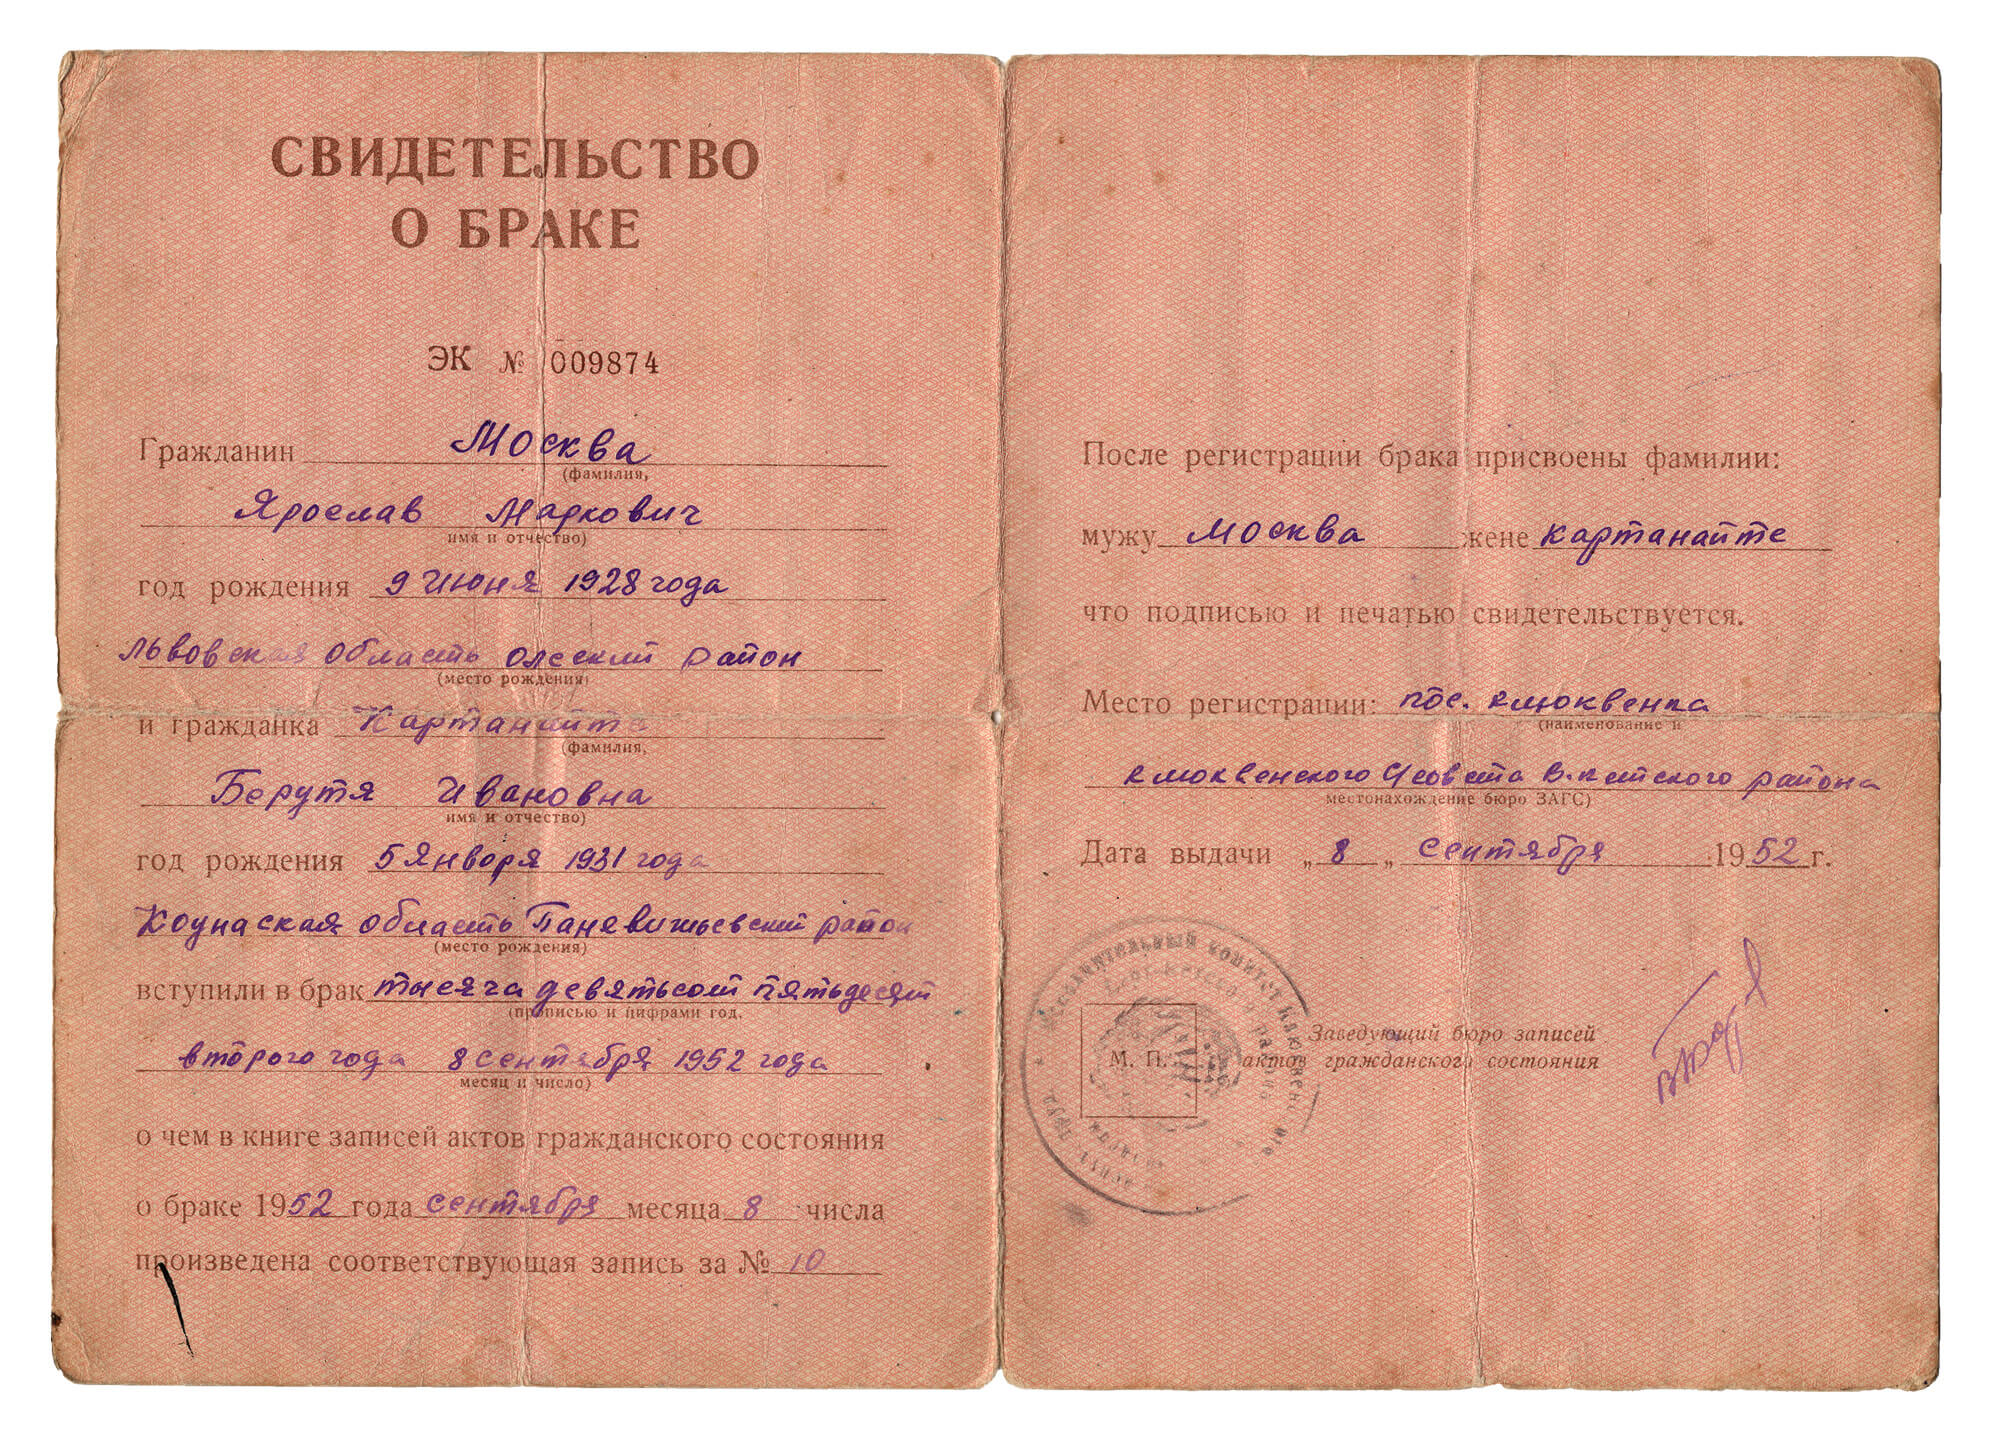 СВИДЕТЕЛЬСТВО
О БРАКЕ
ЭК № 009874
Гражданин Москва
(фамилия,
Ярослав Маркович
имя и отчество)
год рождения 9 июня 1928 года
Львовская область Олеский район
(место рождения)
и гражданка Картанайте
(фамилия,
Берутя Ивановна
имя и отчество)
год рождения 5 января 1931 года
Коунаская область Паневижьевский район
(место рождения)
вступили в брак тысяча девятьсот пятьдесят
(прописью и цифрами год,
второго года 8 сентября 1952 года
месяц и число)
о чем в книге записей актов гражданского состояния
о браке 1952 года сентября месяца 8 числа
произведена соответствующая запись за № 10
После регистрации брака присвоены фамилии:
мужу Москва жене Картанайте
что подписью и печатью свидетельствуется.
Место регистрации: пос. Клюквенка
(наименование и
Клюквенского с/совета В.-Кетского района
местонахождение бюро ЗАГС)
Дата выдачи „8„ сентября 1952 г.
М. П.
Заведующий бюро записей
актов гражданского состояния